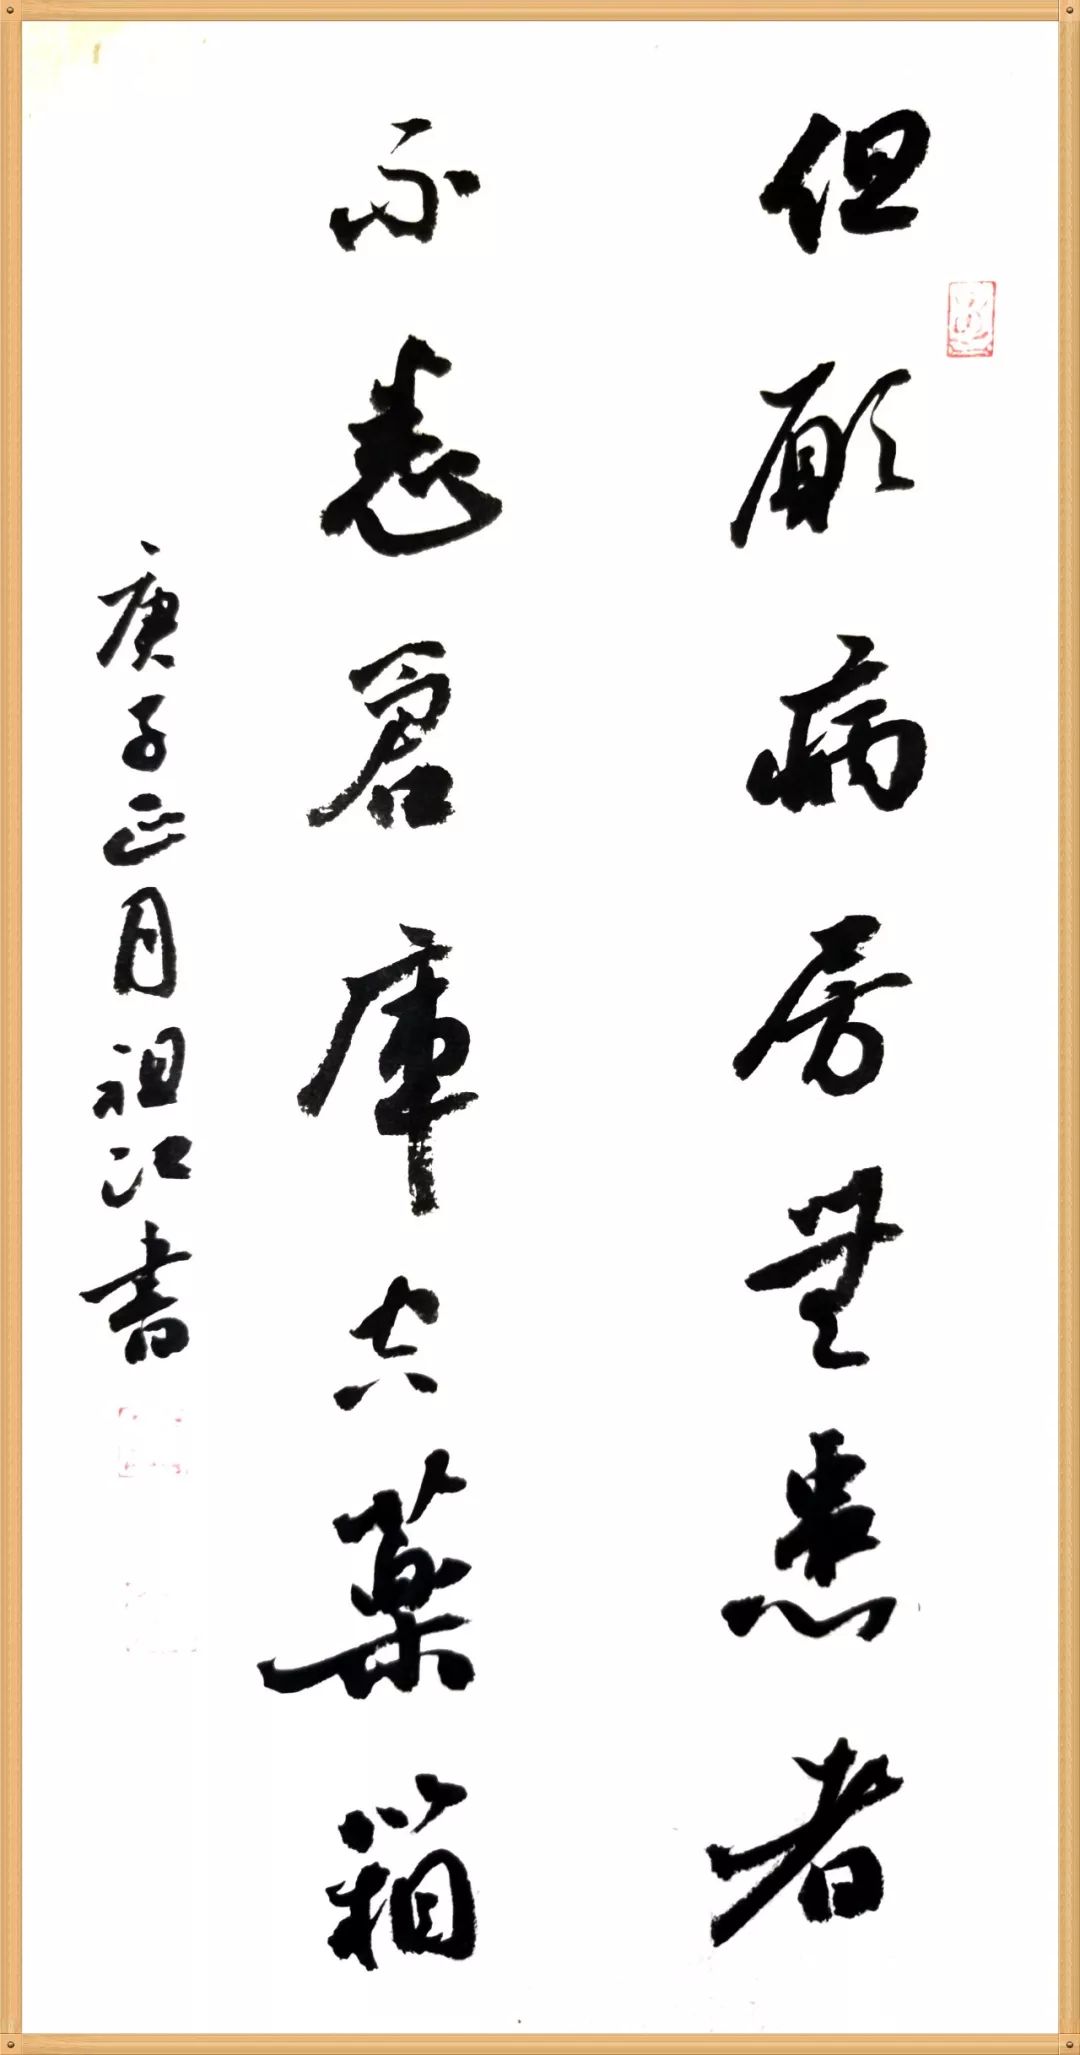 但願病房無患者
不倉庫空藥箱
庚子正月祖江書